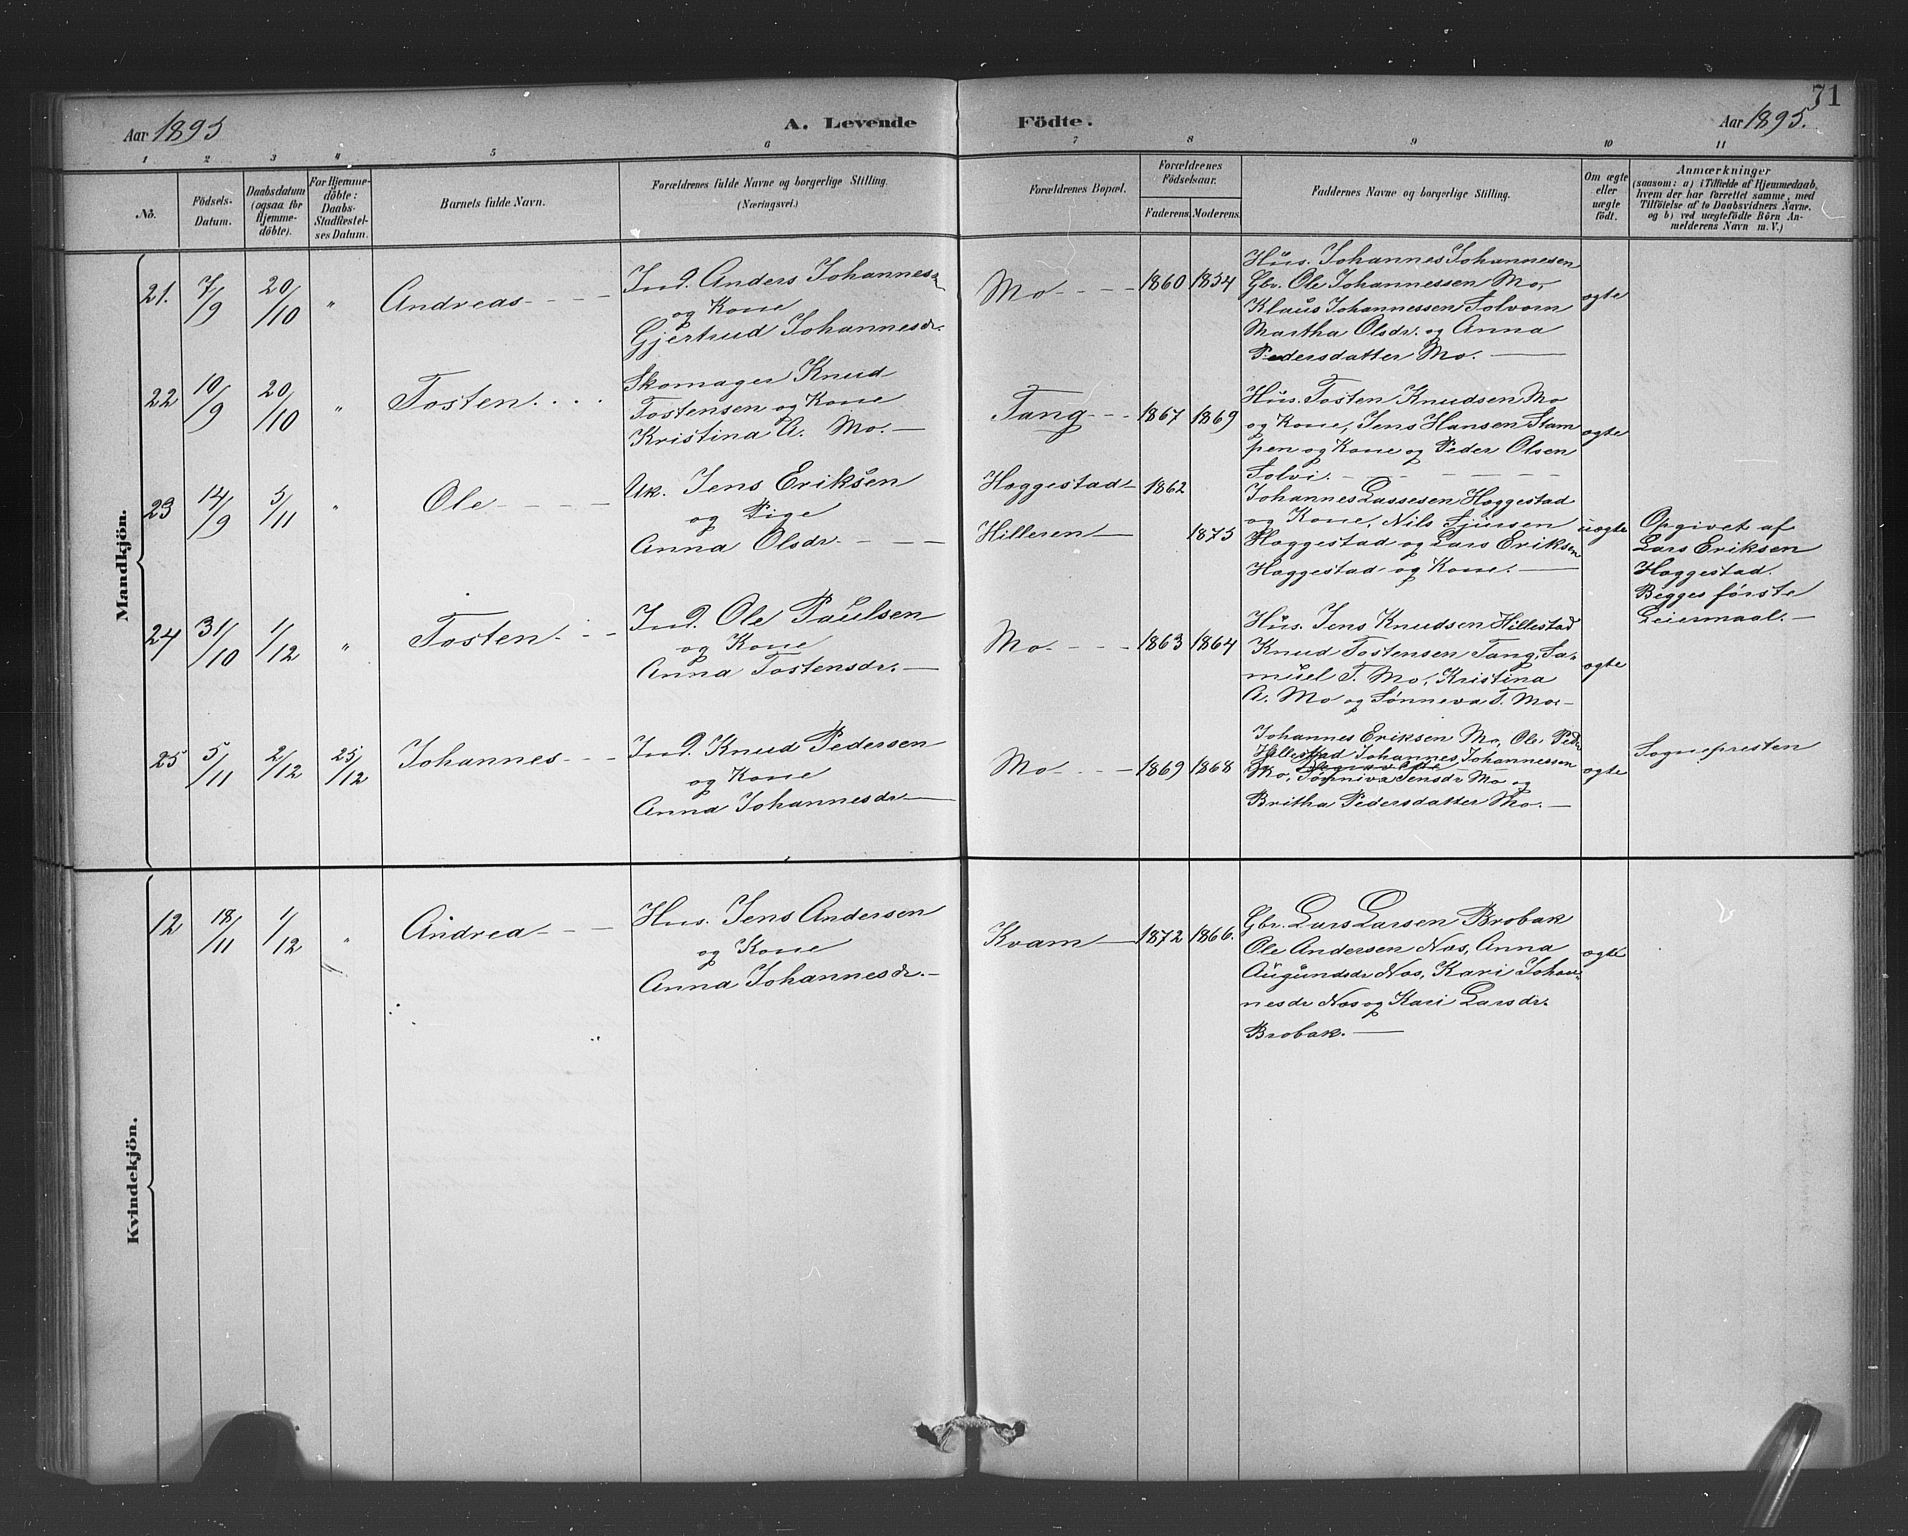 71
Aar 1895
A. Levende Födte.
Aar 1895.
1 2 3 4 5 6 7 8 9 10 11
No.
Födsels-
Datum.
Daabsdatum
(ogsaa for
Hjemme-
döbte).
For Hjemme-
döbte:
Daabs-
Stadfæstel-
ses Datum.
Barnets fulde Navn.
Forældrenes fulde Navne og borgerlige Stilling.
(Næringsvei.)
Forældrenes Bopæl.
Forældrenes
Födselsaar.
Faderens. Moderens.
Faddernes Navne og borgerlige Stilling.
Om ægte
eller
uægte
födt.
Anmærkninger
(saasom: a) i Tilfælde af Hjemmedaab,
hvem der har forrettet samme, med
Tilföielse af to Daabsvidners Navne.
og b) ved uægtefödte Börn An-
melderens Navn m. V.)
Mandkjön.
21. 7/9 20/10 " Andreas
Ind. Anders Johannes-
og Kone
Gjertrud Johannesdr.
Mo. 1860 1854
Hus. Johannes Johannesen
Gbr. Ole Johannessen Mo,
Klaus Johannessen Solvorn
Martha Olsdr. og Anna
Pedersdatter Mo.
ægte
22 10/9 20/10 " Tosten
Skomager Knud
Tostensen og Kone
Kristina A. Mo.
Tang 1867 1869
Hus. Tosten Knudsen Mo
og Kone, Jens Hansen Stam
pen og Kone og Peder Olsen
Solvi.
ægte
23 14/9 3/11 " Ole
Uk. Jens Eriksen
og Pige
Anna Olsdr.
Hæggestad 1862
Hilleren 1875
Johannes Lassesen Hæggestad
og Kone, Nils Sjursen
Hæggestad og Lars Eriksen
Hæggestad og Kone.
uægte
Opgivet af
Lars Eriksen
Hæggestad.
Begges første
Leiermaal.
24 31/10 1/12 " Tosten
Ind. Ole Paulsen
og Kone
Anna Tostensdr.
Mo. 1863 1864
Hus. Jens Knudsen Hillestad
Knud Tostensen Tang, Sa-
muel T. Mo, Kristina
A. Mo og Sønneva T. Mo.
ægte
25 5/11 2/12 25/12 Johannes
Ind. Knud Pedersen
og Kone
Anna Johannesdr.
Mo 1869 1868
Johannes Eriksen Mo, Ole Peds
Hillestad Johannes Johannessen
Mo, Sønniva Jensdr Mo og
Britha Pedersdatter Mo.
ægte
Sognepresten
Kvindekjön.
12 18/11 1/12 " Andrea
Hus. Jens Andersen
og Kone
Anna Johannesdr.
Kvam 1872 1866.
Gbr. Lars Larsen Brobak
Ole Andersen Næs, Anna
Augundsdr Næs, Kari Johan-
nesdr Næs og Kari Larsdr.
Brobak.
ægte